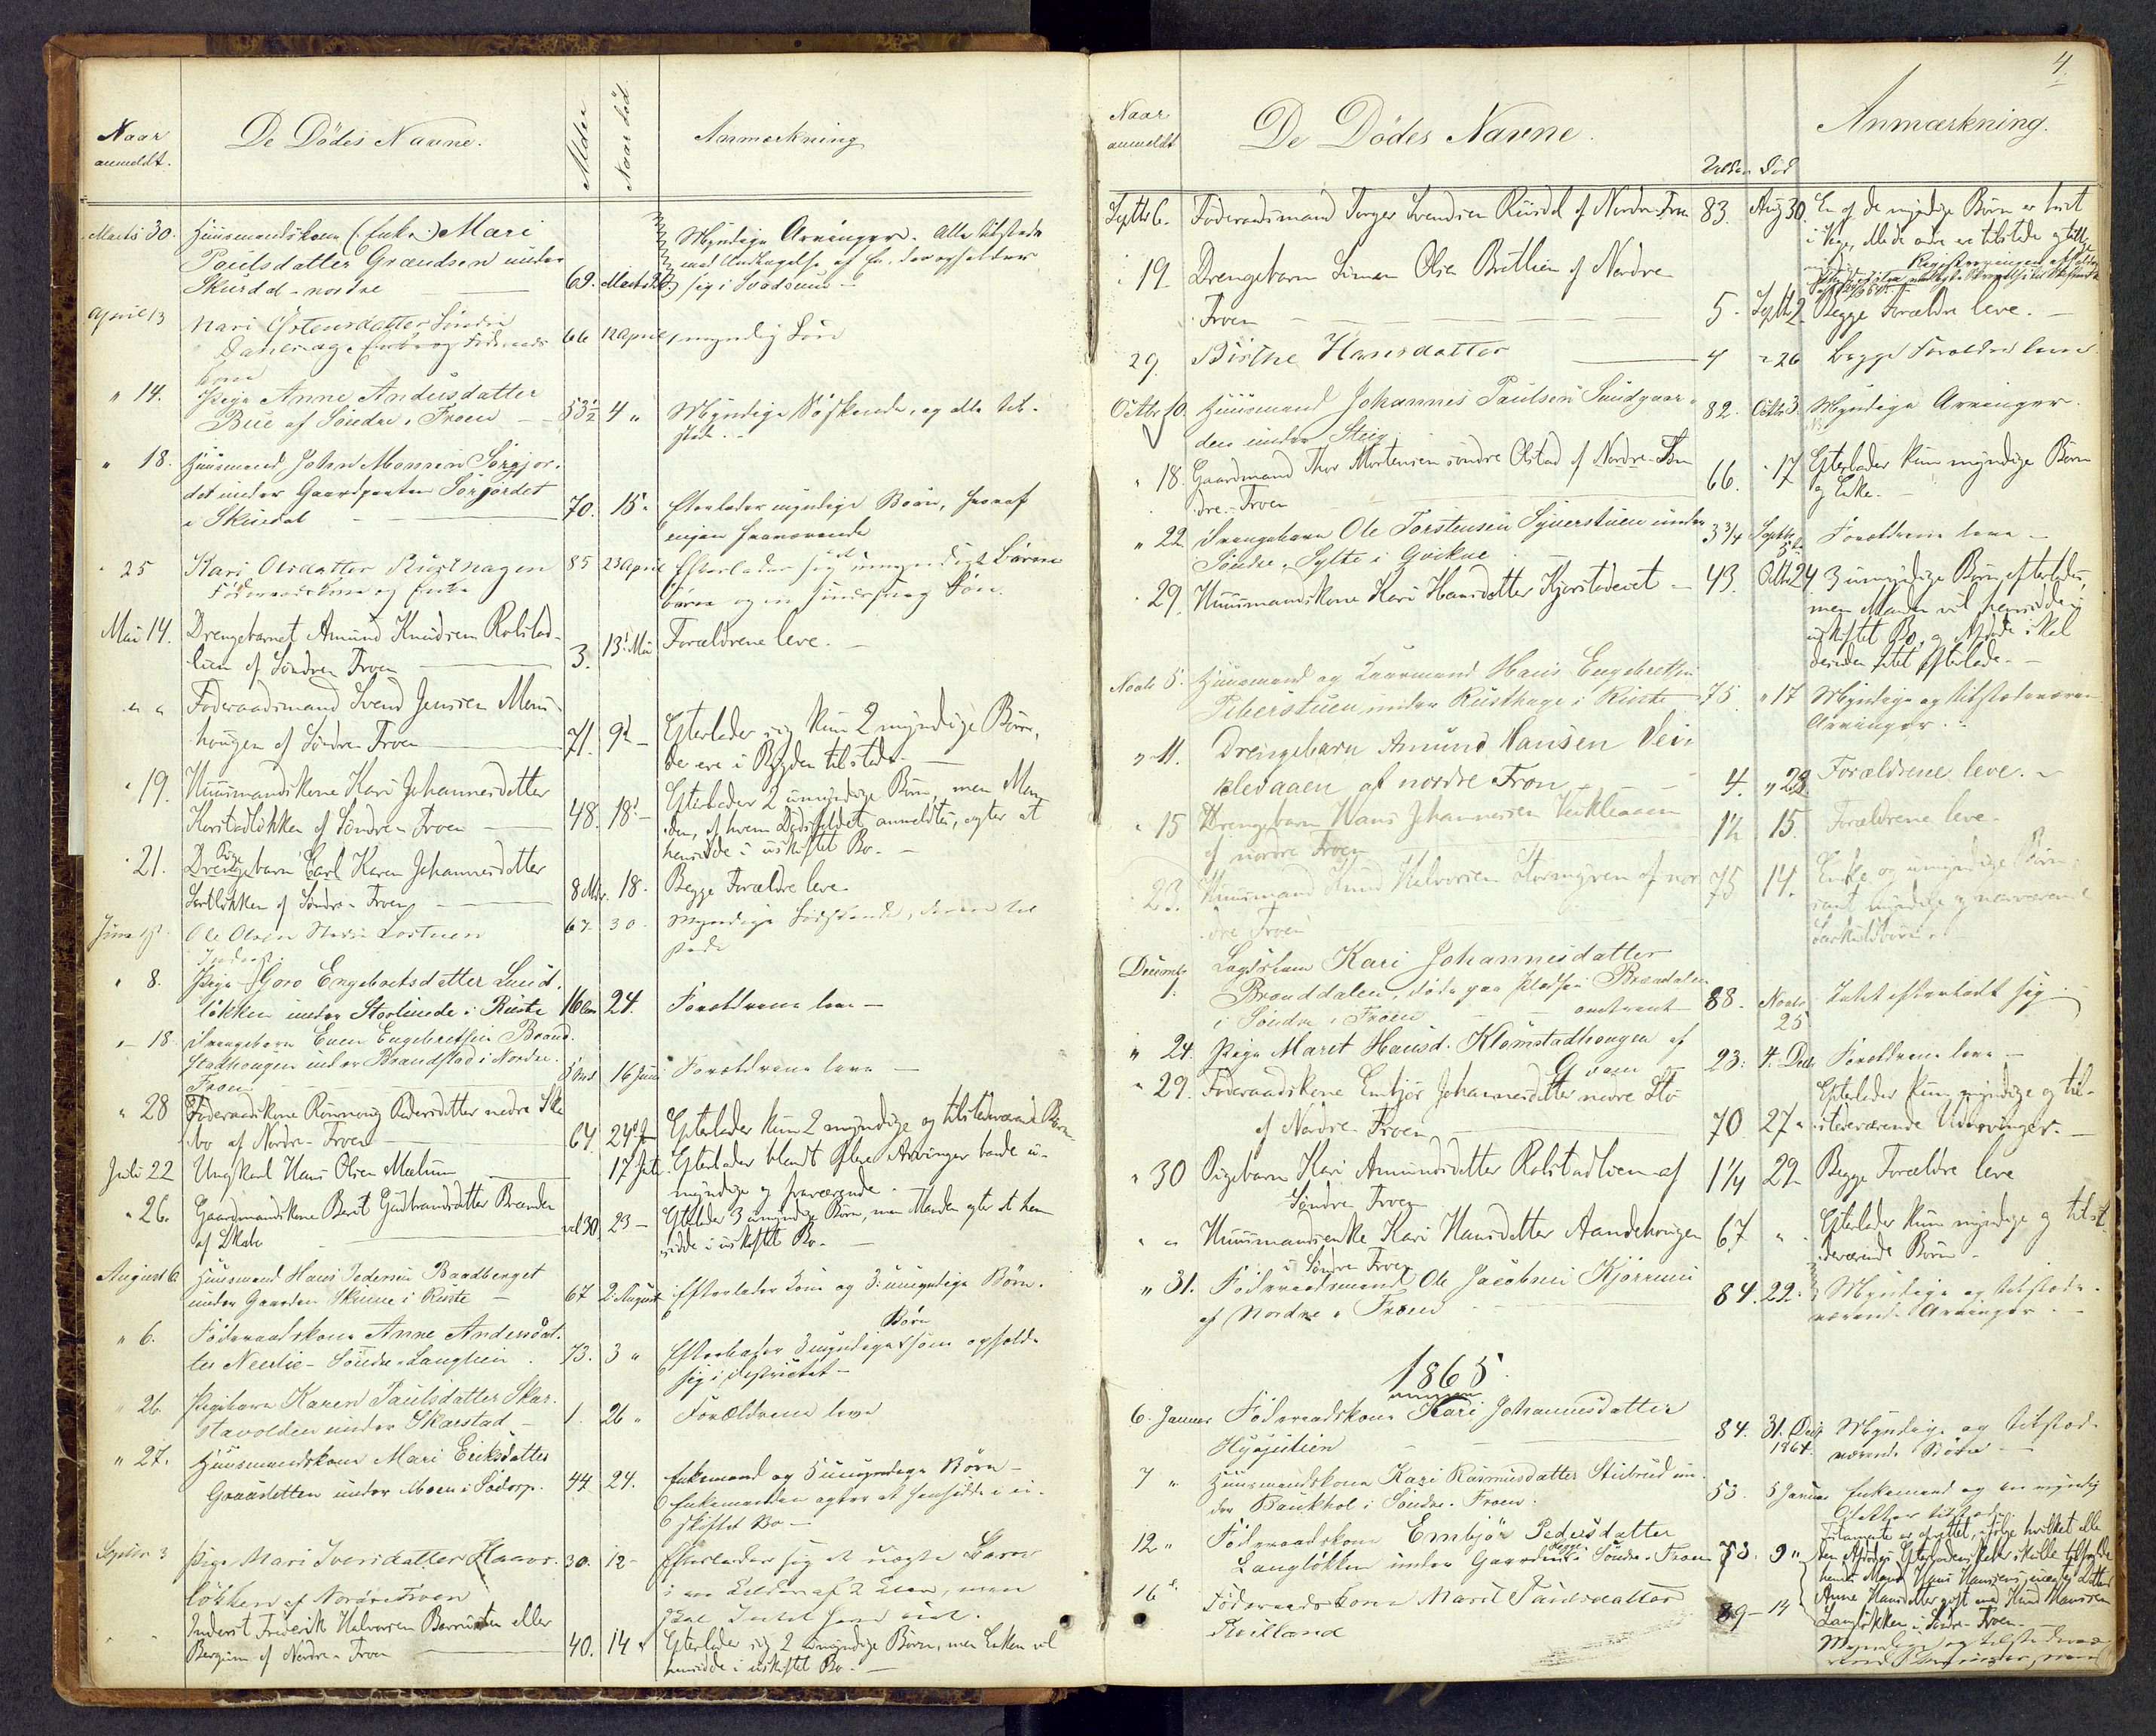 Naar
anmeldt.
De Dødes Navne.
Alder
Naar død
Anmærkning
Marts 30.
Huusmandskone (: Enke :) Mari
Paulsdatter Grændsen under
Skurdal - nordre
69.
Myndige Arvinger. Alle tilstede
med Undtagelse af En, der opholder
sig i Svadsum -
April 13
Mari Østensdatter Søndre
66
12 April
myndig Søn
" 14.
Pige Anne Andersdatter
Bue af Søndre Froen
53½
4 "
Myndige Søskende, og alle til-
stede. -
" 18.
Huusmand John Monsen Sørgjor-
det under Gaardparten Sørgjordet
i Skurdal
70.
15.
Efterlader myndige Børn, hvoraf
ingen fraværende
" 25
Kari Olsdatter Rusthagen
Føderaadskone og Enke
85
23 April
Efterlader sig umyndige Børne
børn og en Søn.
Mai 14.
Drengebarnet Amund Knudsen Rolstad-
lien af Søndre Froen
3.
13 Mai
Forældrene leve. -
" "
Føderaadsmand Svend Jensen Moen-
hougen af Søndre Froen
71.
9d -
Efterlader sig kun 2 myndige Børn,
de ere i Bygden tilstede. -
" 19.
Huusmandskone Kari Johannesdatter
Korstadløkken af Søndre Froen
48.
18d -
Efterlader 2 umyndige Børn, men Man-
den, af hvem Dødsfaldet anmeldtes, agter at
hensidde i uskiftet Bo. -
" 21.
Pige
Drengebarn Carl Karen Johannesdatter
af Søndre Froen
8 Mdr.
18.
Begge Forældre leve.
Ole Olsen
67.
30.
Myndige Sødskende, til
stede
" 8.
Pige Goro Engebretsdatter Lund-
løkken under Storlinede i Ruste
16 Aar
24.
Forældrene leve -
" 18.
Drengebarn Even Engebretsen Brand-
stadhougen under Brandstad i Nordre
Froen
16 Juni
Forældrene leve -
" 28
Føderaadskone Rønnoug Pedersdatter nedre Ske-
bo af Nordre Froen
64.
24d Jun
Efterlader kun 2 myndige og tilstedeværende Børn
Juli 22
Ungkarl Hans Olsen Mælum
17 Juli
Efterlader blandt flere Arvinger baade u-
myndige og fraværende -
" 26.
Gaardmandskone Berit Gudbrandsdatter Brænden
af Skabo
ved 30
23 -
Efterlader 3 umyndige Børn, men Manden agter at hen-
sidde i uskiftet Bo. -
August 6.
Huusmand Hans Pedersen Baadberget
under Gaarden Skurue i Ruste
67
2. August
Efterlader Kone og 3 umyndige Børn.
" 6.
Føderaadskone Anne Andersdat-
ter Neerlie - Søndre Langlien
73.
3 "
Børn
Efterlader 3 myndige som opholde
sig i Distriktet -
" 26.
Pigebarn Karen Paulsdatter Skar-
stavolden under Skarstad -
1.
26 "
Forældrene leve
" 27.
Huusmandskone Mari Eriksdatter
Graasletten under Moen i Sødorp.
44
24.
Enkemand og 5 umyndige Børn -
Enkemanden agter at hensidde i u-
skiftet Bo -
Septbr 3
Pige Mari Iversdatter Haave-
løkken af Nordre Froen
30.
12 -
Efterlader sig et uægte Barn
i en Alder af 2 Aar, men
skal Intet have eiet.
Inderst Frederik Halvorsen eller
Bergum af Nordre Froen
40.
14
Efterlader sig 2 umyndige Børn, men Enken vil
hensidde i uskiftet Bo. -
4
Naar
anmeldt
De Dødes Navne.
Alder
Død
Anmærkning.
Septbr 6.
Føderaadsmand Torger Svendsen Ruisdal af Nordre Froen
83.
Aug 30.
En af de myndige Børn er
alle de andre er tilstede
" 19
Drengebarn Simen Olsen Bretlien af Nordre
Froen
5.
Septbr 2
Begge Forældre leve. -
29.
Birthe Hansdatter
4
" 26
Begge Forældre leve
Octbr 10.
Huusmand Johannes Paulsen Sundgaar-
den under Steig
82.
Octbr 3.
Myndige Arvinger.
" 18.
Gaardmand Thor Mortensen søndre Olstad af Nordre Froen
dre Froen
66.
" 17
Efterlader kun myndige Børn
og Enke. -
" 22
Drengebarn Ole Torstensen Syverstuen under
Søndre Sylte i Qvikne
3¾
Septbr
Forældrene leve -
" 29.
Huusmandskone Kari Hansdatter Kjorstadeiet
43.
Octbr 24
3 umyndige Børn efterlades,
men Manden vil hensidde i
uskiftet Bo, og Afdøde skal
desuden Intet efterlade. -
Novbr 5.
Huusmand og Haus Engebretsen
Piberstuen under Rusthage i Ruste
75
" 17
Myndige og tilstedeværende
Arvinger. -
" 11.
Drengebarn Amund Hansen Vein
kledaaen af nordre Fron
4.
" 28.
Forældrene leve. -
" 15
Drengebarn Hans Johannesen Veikleaaen
af nordre Froen
1½
15.
Forældrene leve.
23.
Huusmand Knud Halvorsen Stormyren af nor-
dre Froen
75
14.
Enke og umyndige Børn,
samt myndige og nærværende
Særkuldbørn.
Decembr
1.
Lægdslem Kari Johannesdatter
Brænddalen, døde paa Pladsen Brændalen
i Søndre Froen omtrent
88.
Novbr
25
Intet efterladt sig.
" 24.
Pige Marit Hansd. Klomstadhougen af
Qvam
23.
4. Decbr
Forældrene leve -
" 29.
Føderaadskone Embjør Johannesdatter nedre Sto
af Nordre Froen
70
27 "
Efterlader kun myndige og til-
stedeværende Udarvinger. -
" 30
Pigebarn Kari Amundsdatter Rolstadlien af
Søndre Froen
1¼
22
Begge Forældre leve
" "
Huusmandsenke Kari Hansdatter Aandehougen
i Søndre Froen
67
"
Efterlader kun myndige og tilste-
deværende Børn -
" 31.
Føderaadsmand Ole Jacobsen Kjørrum
af Nordre Froen
84.
22.
Myndige og tilstede-
værende Arvinger. -
1865.
6. Januar
Føderaadskone Kari Johannesdatter
84.
31. Decbr
1864.
Myndige og tilstede-
værende Børn -
7 "
Huusmandskone Kari Rasmusdatter Stubrud un-
der Baukhol i Søndre Froen.
53.
5 Januar
Enkemand og en myndig
Datter tilstede
12 "
Føderaadskone Embjør Pedersdatter
Langløkken under Gaarden i Søndre Froen
73.
9 "
Testamente er oprettet, ifølge hvilket alle
den Afdødes Efterladenskaber skulle tilfalde
hendes Mand Hans Hansens Datter
Anne Hansdatter gift med Knud Hansen
Langløkken i Søndre Froen. -
16 "
Føderaadskone Marit Paulsdatter
Kvilland
89 -
14
Myndige og tilstedevæ-